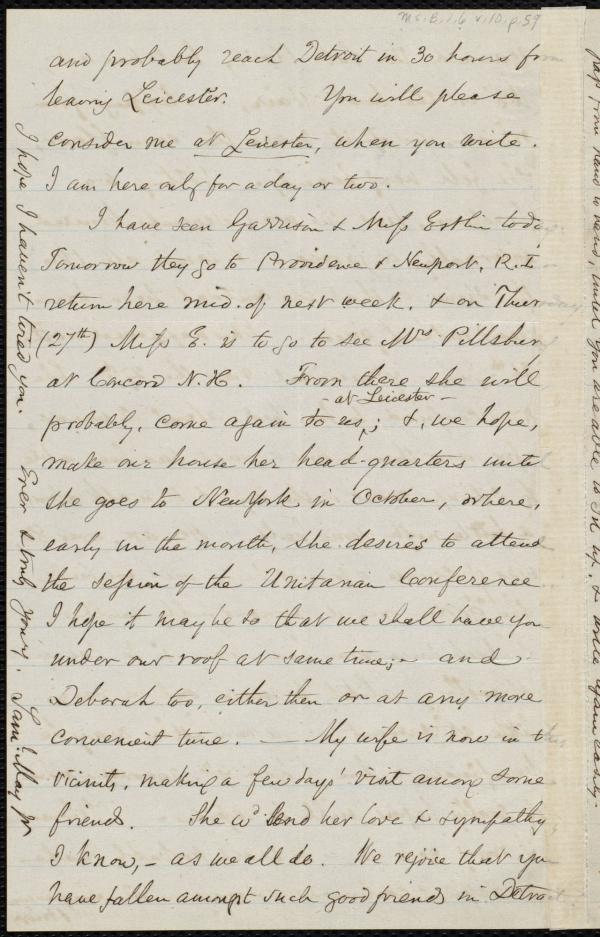 Ms.B.1.6 v.10, p.59
and probably reach Detroit in 30 hours from
leaving Leicester. You will please
consider me at Leicester, when you write.
I am here only for a day or two.
I have seen Garrison & Miss Estlin today.
Tomorrow they go to Providence & Newport, R.I.
return here mid. of next week, & on Thursday
(27th) Miss E. is to go to see Mrs. Pillsbury
at Concord N.H. From there she will
- at Leicester -
probably, come again to us; &, we hope,
make our house her head-quarters until
she goes to New York in October, where,
early in the month, she desires to attend
the session of the Unitarian Conference
I hope it may be so that we shall have you
under our roof at same time; - and
Deborah too, either then or at any more
convenient time. — My wife is now in this
vicinity, making a few days' visit among some
friends. She wd. send her love & sympathy
I know, - as we all do. We rejoice that you
have fallen amongst such good friends in Detroit
I hope I haven't tired you. Ever & truly yours. Saml. May Jr
from hand to hand, until you are able to sit up, & write again easily.